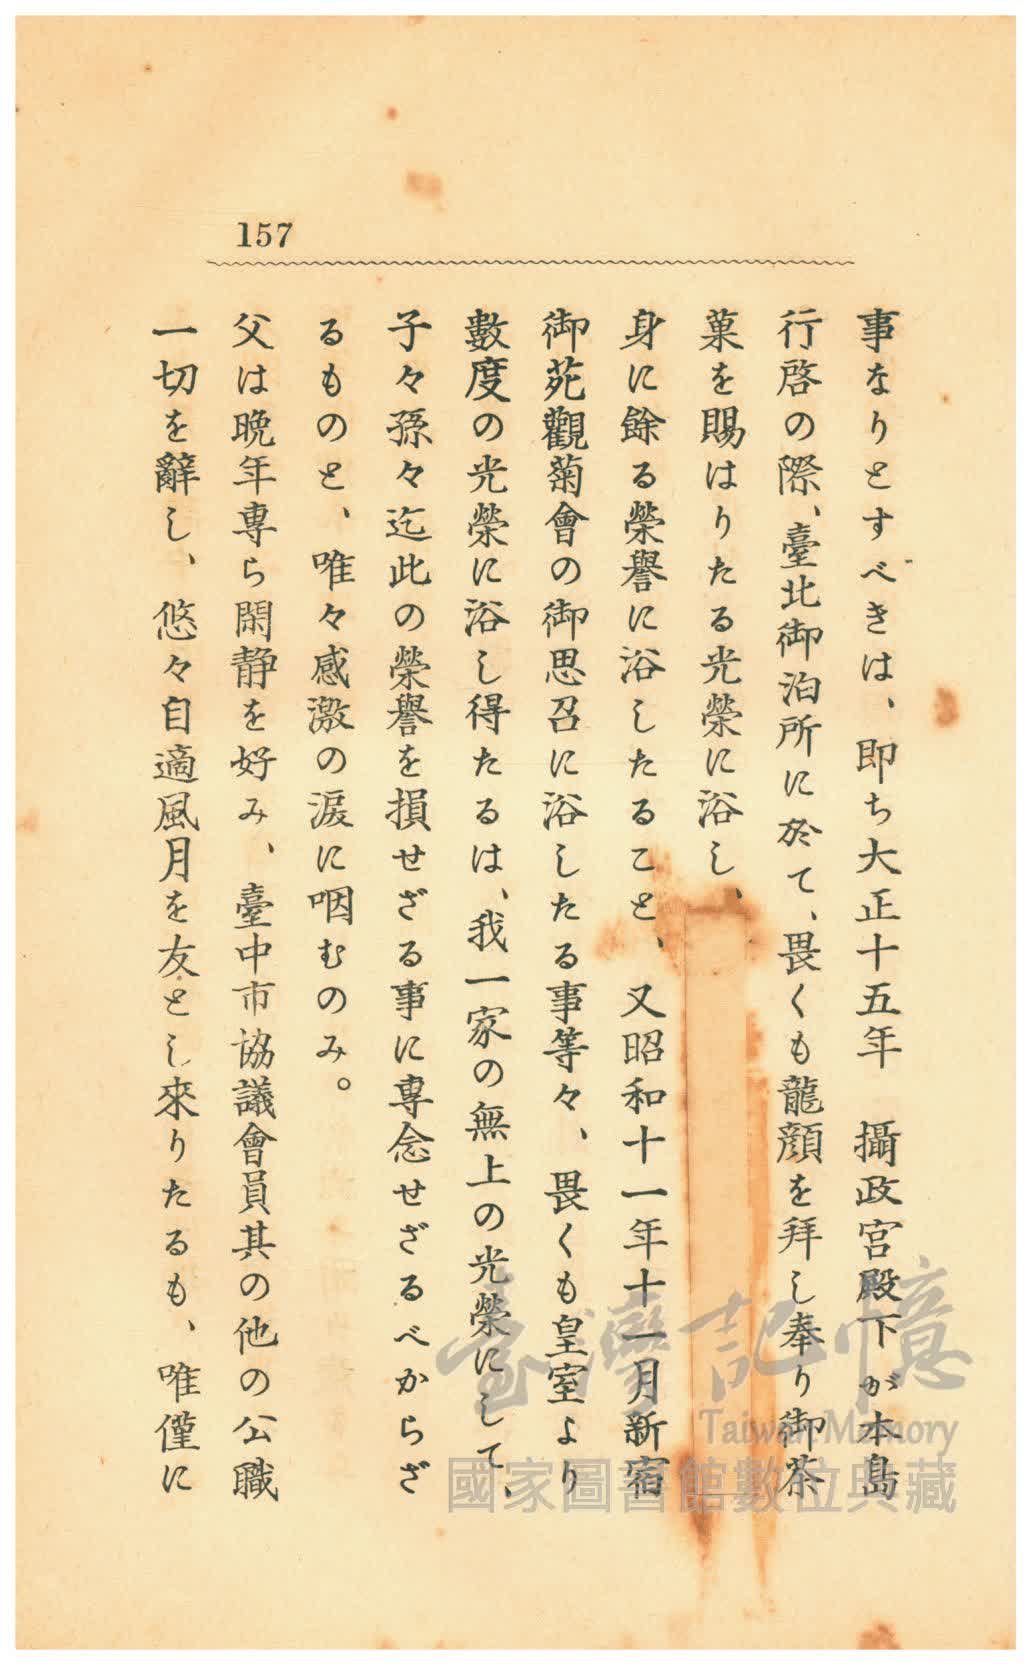 157
事なりとすべきは、即ち大正十五年　攝政宮殿下が本島
行啓の際、臺北御泊所に於て、畏くも龍顔を拜し奉り御茶
菓を賜はりたる光榮に浴し、
身に餘る榮譽に浴したること、又昭和十一年十一月新宿
御苑觀菊會の御思召に浴したる事等々、畏くも皇室より
數度の光榮に浴し得たるは、我一家の無上の光榮にして、
子々孫々迄此の榮譽を損せざる事に專念せざるべからざ
るものと、唯々感激の淚に咽むのみ。
父は晩年專ら閑靜を好み、臺中市協議會員其の他の公職
一切を辭し、悠々自適風月を友とし來りたるも、唯僅に
臺灣記憶
Taiwan Memory
國家圖書館數位典藏